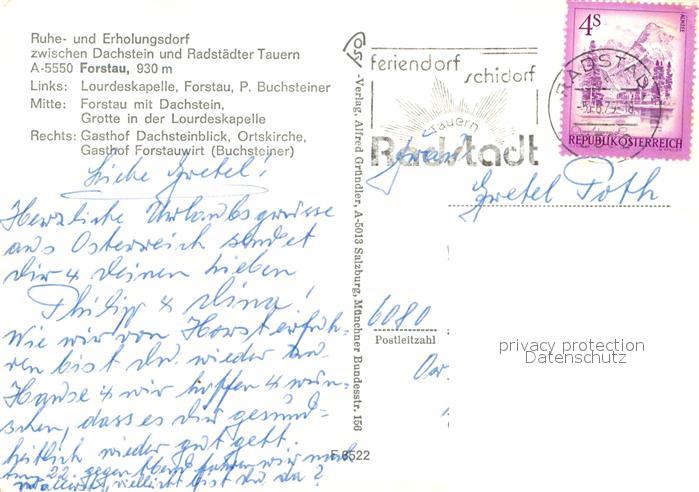 Ruhe- und Erholungsdorf
zwischen Dachstein und Radstädter Tauern
A-5550 Forstau, 930 m
Links: Lourdeskapelle, Forstau, P. Buchsteiner
Mitte: Forstau mit Dachstein,
Grotte in der Lourdeskapelle
Rechts: Gasthof Dachsteinblick, Ortskirche,
Gasthof Forstauwirt (Buchsteiner)
Liebe Gretel!
Herzliche Urlaubsgrüsse
aus Österreich sendet
Dir & Deinen Lieben
Philipp & Dina!
Wie wir von Horst erfuh-
ren bist Du wieder zu
Hause & wir hoffen & wün-
schen, dass es Dir gesund-
heitlich wieder gut geht.
22. gegen Abend fahren wir nach
vielleicht bist Du da?
-Verlag, Alfred Gründler, A-5013 Salzburg, Münchner Bundesstr. 156
F 6522
feriendorf
schidorf
Tauern
Radstadt
4S
ALMSEE
REPUBLIK ÖSTERREICH
RADSTADT
Frau
Gretel Poth
6080
Postleitzahl
privacy protection
Datenschutz